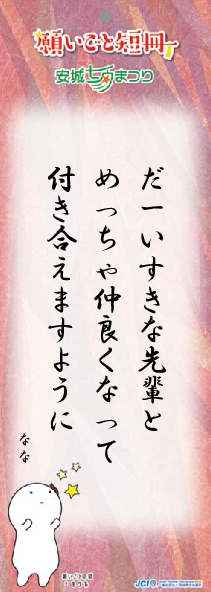 願いごと短冊
安城七夕まつり
だーいすきな先輩と
めっちゃ仲良くなって
付き合えますように
なな
願いごと短冊
JCI